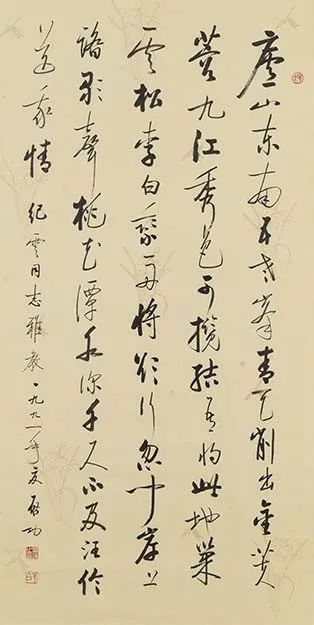 廬山东南五老峯青天削出金芙
蓉九江秀色可攬結吾将此地巢
雲松李白乘舟将欲行忽闻岸上
踏歌聲桃花潭水深千尺不及汪伦
送我情 纪雲同志雅教 一九九一年夏 启功